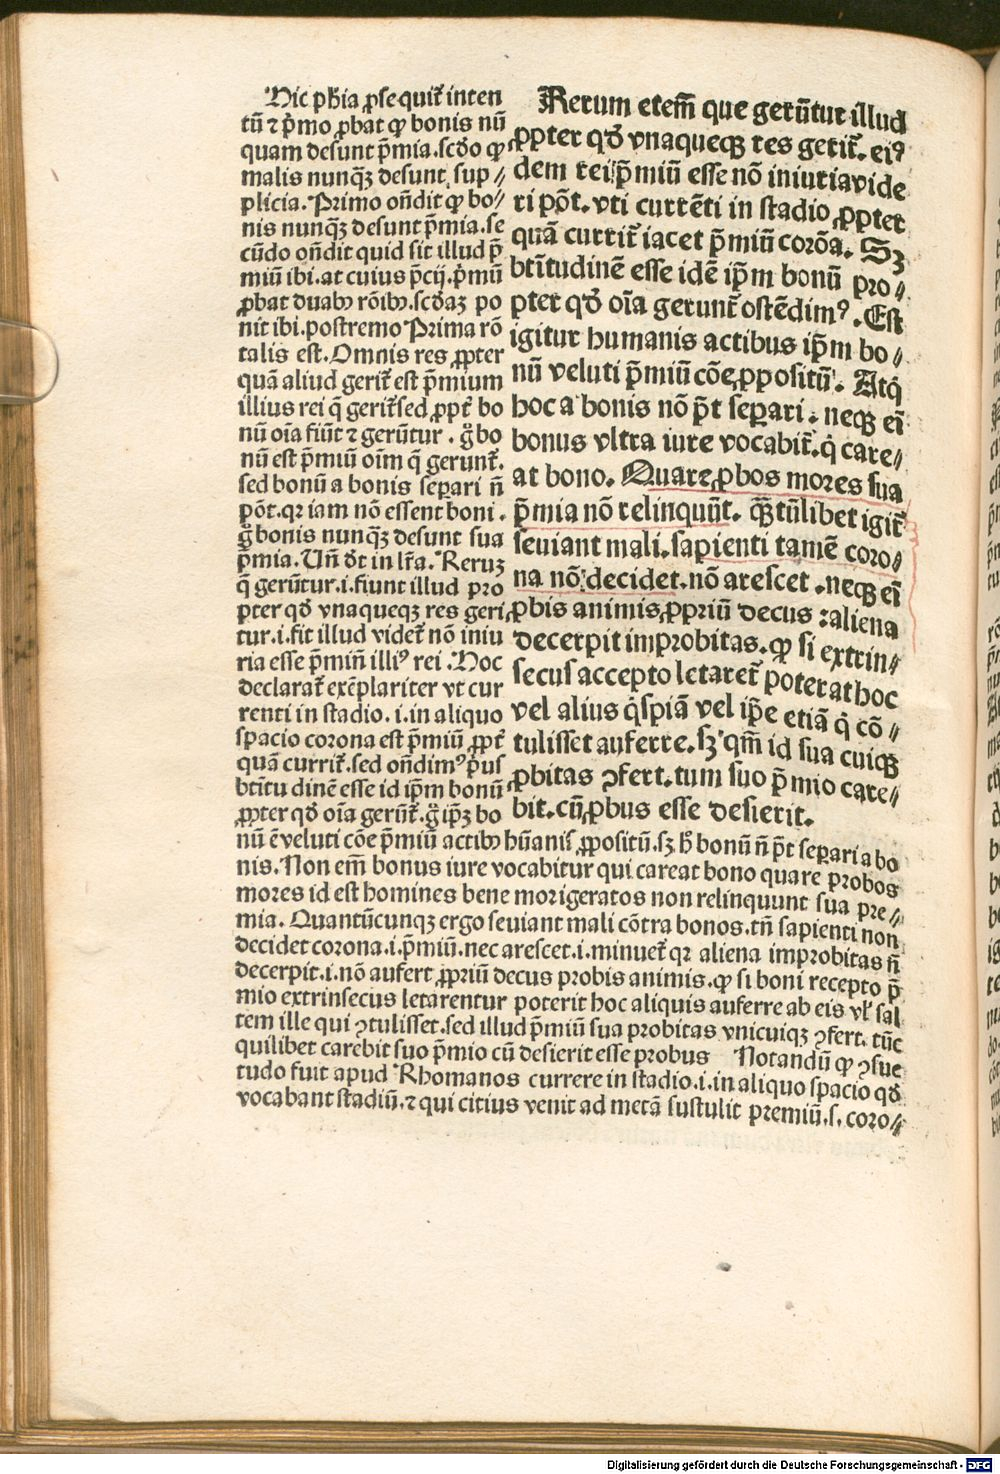 Hic ph̄ia ꝓsequit᷑ inten
tū ⁊ p̄mo ꝓbat ꝙ bonis nū
quam desunt p̄mia.scd̄o ꝙ
malis nunqꝫ desunt sup⸗
plicia. Primo on̄dit ꝙ bo⸗
nis nunqꝫ desunt p̄mia. se
cūdo on̄dit quid sit illud p̄
miū ibi. at cuius p̄cij. p̄mū
ꝓbat duabꝫ rōibꝫ. scd̄aꝫ po
nit ibi. postremo Prima rō
talis est. Omnis res ꝓpter
quā aliud gerit᷑ est p̄mium
illius rei q̄ gerit᷑ sed ꝓpt᷑ bo
nū oīa fiūt ⁊ gerūtur . g̊ bo
nū est p̄miū oīm q̄ gerunt᷑.
sed bonū a bonis separi n̄
pōt. qꝛ iam nō essent boni .
g̊ bonis nunqꝫ desunt sua
p̄mia. Un̄ d̄t in lr̄a. Reruꝫ
q̄ gerūtur .i. fiunt illud pro
pter qd̄ vnaqueqꝫ res geri
tur .i. fit illud videt᷑ nō iniu
ria esse p̄miū illiꝰ rei . Hoc
declarat᷑ exēplariter vt cur
renti in stadio .i. in aliquo
spacio corona est p̄miū ꝓpt᷑
quā currit᷑. sed on̄dimꝰ p̄us
btītu dinē esse id ip̄m bonū
ꝓpter qd̄ oīa gerūt᷑. g̊ ip̄ꝫ bo
nū ē veluti cōe p̄miū actibꝫ hūanis ꝓpositū. sꝫ hͦ bonū n̄ p̄t separi a bo
nis. Non em̄ bonus iure vocabitur qui careat bono quare probos
mores id est homines bene morigeratos non relinquunt sua pre⸗
mia. Quantūcunqꝫ ergo seuiant mali cōtra bonos. tn̄ sapienti non
decidet corona .i. p̄miū. nec arescet .i. minuet᷑ qꝛ aliena improbitas n̄
decerpit .i. nō aufert ꝓpriū decus probis animis. ꝙ si boni recepto p̄
mio extrinsecus letarentur poterit hoc aliquis auferre ab eis vl̄ sal
tem ille qui ꝯtulisset. sed illud p̄miū sua probitas vnicuiqꝫ ꝯfert. tūc
quilibet carebit suo p̄mio cū desierit esse probus Notandū ꝙ ꝯsue
tudo fuit apud Rhomanos currere in stadio .i. in aliquo spacio qd̄
vocabant stadiū. ⁊ qui citius venit ad metā sustulit premiū .s. coro⸗
Rerum etem̄ que gerūtur illud
ꝓpter qd̄ vnaqueqꝫ res gerit᷑. eiꝰ
dem rei p̄miū esse nō iniuria vide
ri pōt. vti currēti in stadio ꝓpter
quā currit᷑ iacet p̄miū corōa. Sꝫ
btītudinē esse idē ip̄m bonū pro⸗
pter qd̄ oīa gerunt᷑ ostēdimꝰ . Est
igitur humanis actibus ip̄m bo⸗
nū veluti p̄miū cōe ꝓpositū . Atqꝫ
hoc a bonis nō p̄t separi . neqꝫ ei᷑
bonus vltra iure vocabit᷑. q̇ care⸗
at bono. Quare ꝓbos mores sua
p̄mia nō relinquūt. qꝫtūlibet igit᷑
seuiant mali. sapienti tamē coro⸗
na nō decidet. nō arescet . neqꝫ ei᷑
ꝓbis animis ꝓpriū decus : aliena
decerpit improbitas. ꝙ si extrin⸗
secus accepto letaret᷑ poterat hoc
vel alius q̇spiā vel ip̄e etiā q̇ cō⸗
tulisset auferre. sꝫ qm̄ id sua cuiqꝫ
ꝓbitas ꝯfert. tum suo p̄mio care⸗
bit. cū ꝓbus esse desierit.
Digitalisierung gefördert durch die Deutsche Forschungsgemeinschaft - DFG